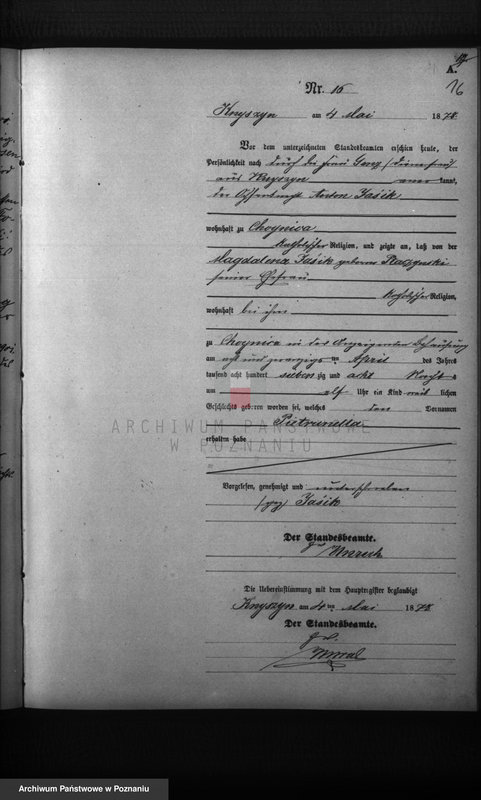 A.
16
Nr. 16
Knyszyn am 4 Mai 1878
Vor dem unterzeichneten Standesbeamten erschien heute, der
Persönlichkeit nach durch
aus Knyszyn kannt,
der Anton Jasik
wohnhaft zu Choynica
katholischer Religion, und zeigte an, daß von der
Magdalena Jasik geborene Raczynski
seiner Ehefrau
katholischer Religion,
wohnhaft bei ihm
zu Choynica in der Behausung
am acht und zwanzigsten April des Jahres
tausend acht hundert siebenzig und acht Nachts
um elf Uhr ein Kind weiblichen
Geschlechts geboren worden sei, welches den Vornamen
Pietrunella
erhalten habe
Vorgelesen, genehmigt und unterschrieben
(gez) Jasik
Der Standesbeamte.
Die Uebereinstimmung mit dem Hauptregister beglaubigt
Knyszyn am 4ten Mai 1878
Der Standesbeamte.
ARCHIWUM PAŃSTWOWE
W POZNANIU
Archiwum Państwowe w Poznaniu